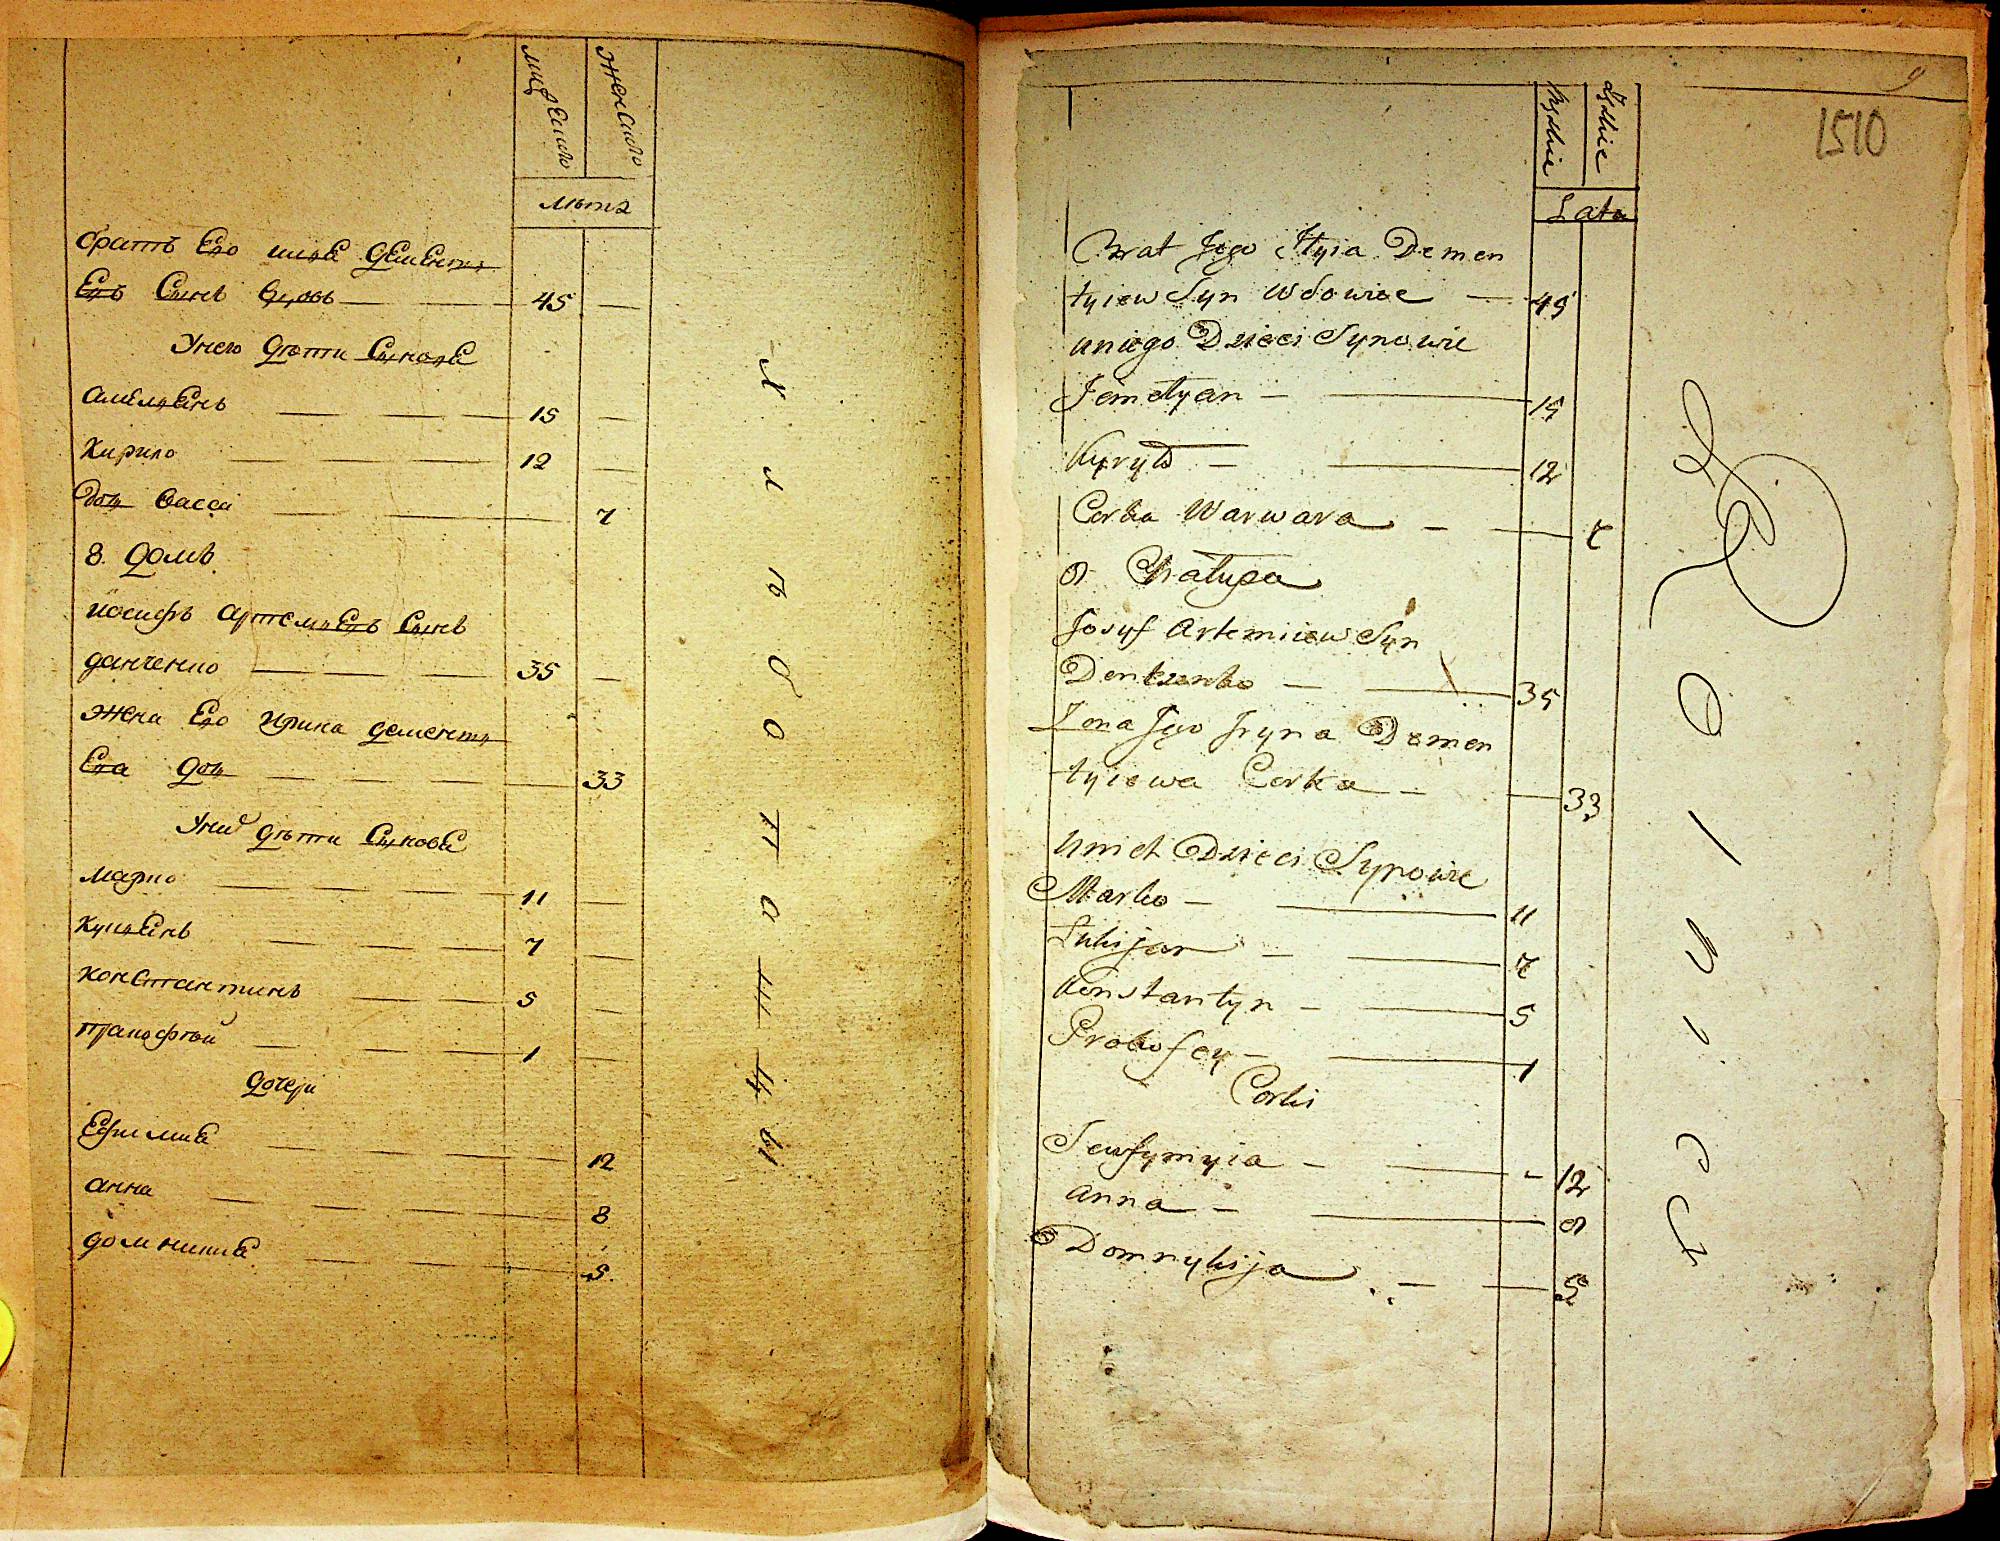 мужеска
женска
лѣта
братъ Его илїа дементї
Евъ Сынъ вдовъ 45 —
Унего дѣти Сыновѣ
амелїанъ 15 —
Кирило 12 —
дощ васса 7
8. домъ
иосифъ артемїевъ Сынъ
данченко 35 —
жена Его ирина дементї
Ева дощ 33
Уних дѣти Сыновѣ
марко 11 —
Кунїанъ 7 —
константинъ 5 —
Прокофѣй 1 —
дочери
Ефимиа 12
анна 8
домникиа 5.
9
1510
Męskie
Żęskie
Lata
Brat Jego Jlyia Demen
tyiew Syn Wdowiec — 45
uniego Dzieci Synowie
Jemelyan — 15
Kyryło — 12
Corka Warwara — 7
8 Chałupa
Josyf Artemiiew Syn
Denczenko — 35
Zona Jego Jryna Demen
tyiewa Corka — 33
Unich Dzieci Synowie
Marko — 11
Łukijan — 7
Konstantyn — 5
Prokofey — 1
Corki
Jewfymyia — 12
anna — 8
Domnykija — 5